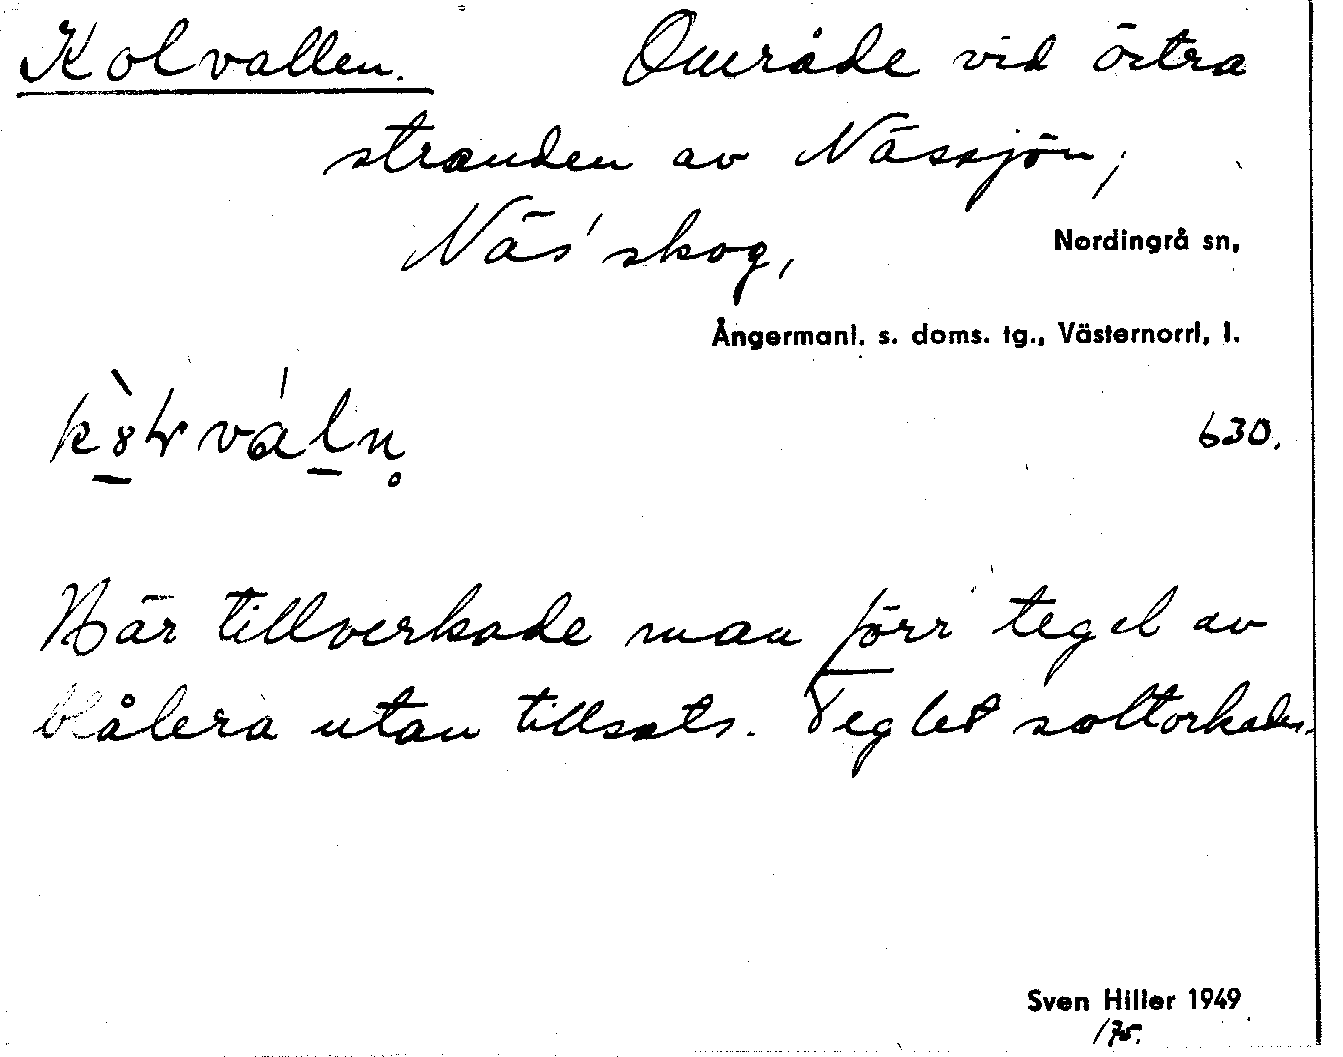 Kolvallen. Område vid östra
stranden av Nässjön,
Näs' skog, Nordingrå sn,
Ångermanl. s. doms. tg., Västernorrl. l.
630.
Här tillverkade man förr tegel av
blålera utan tillsats. Teglet soltorkades.
Sven Hiller 1949
175.